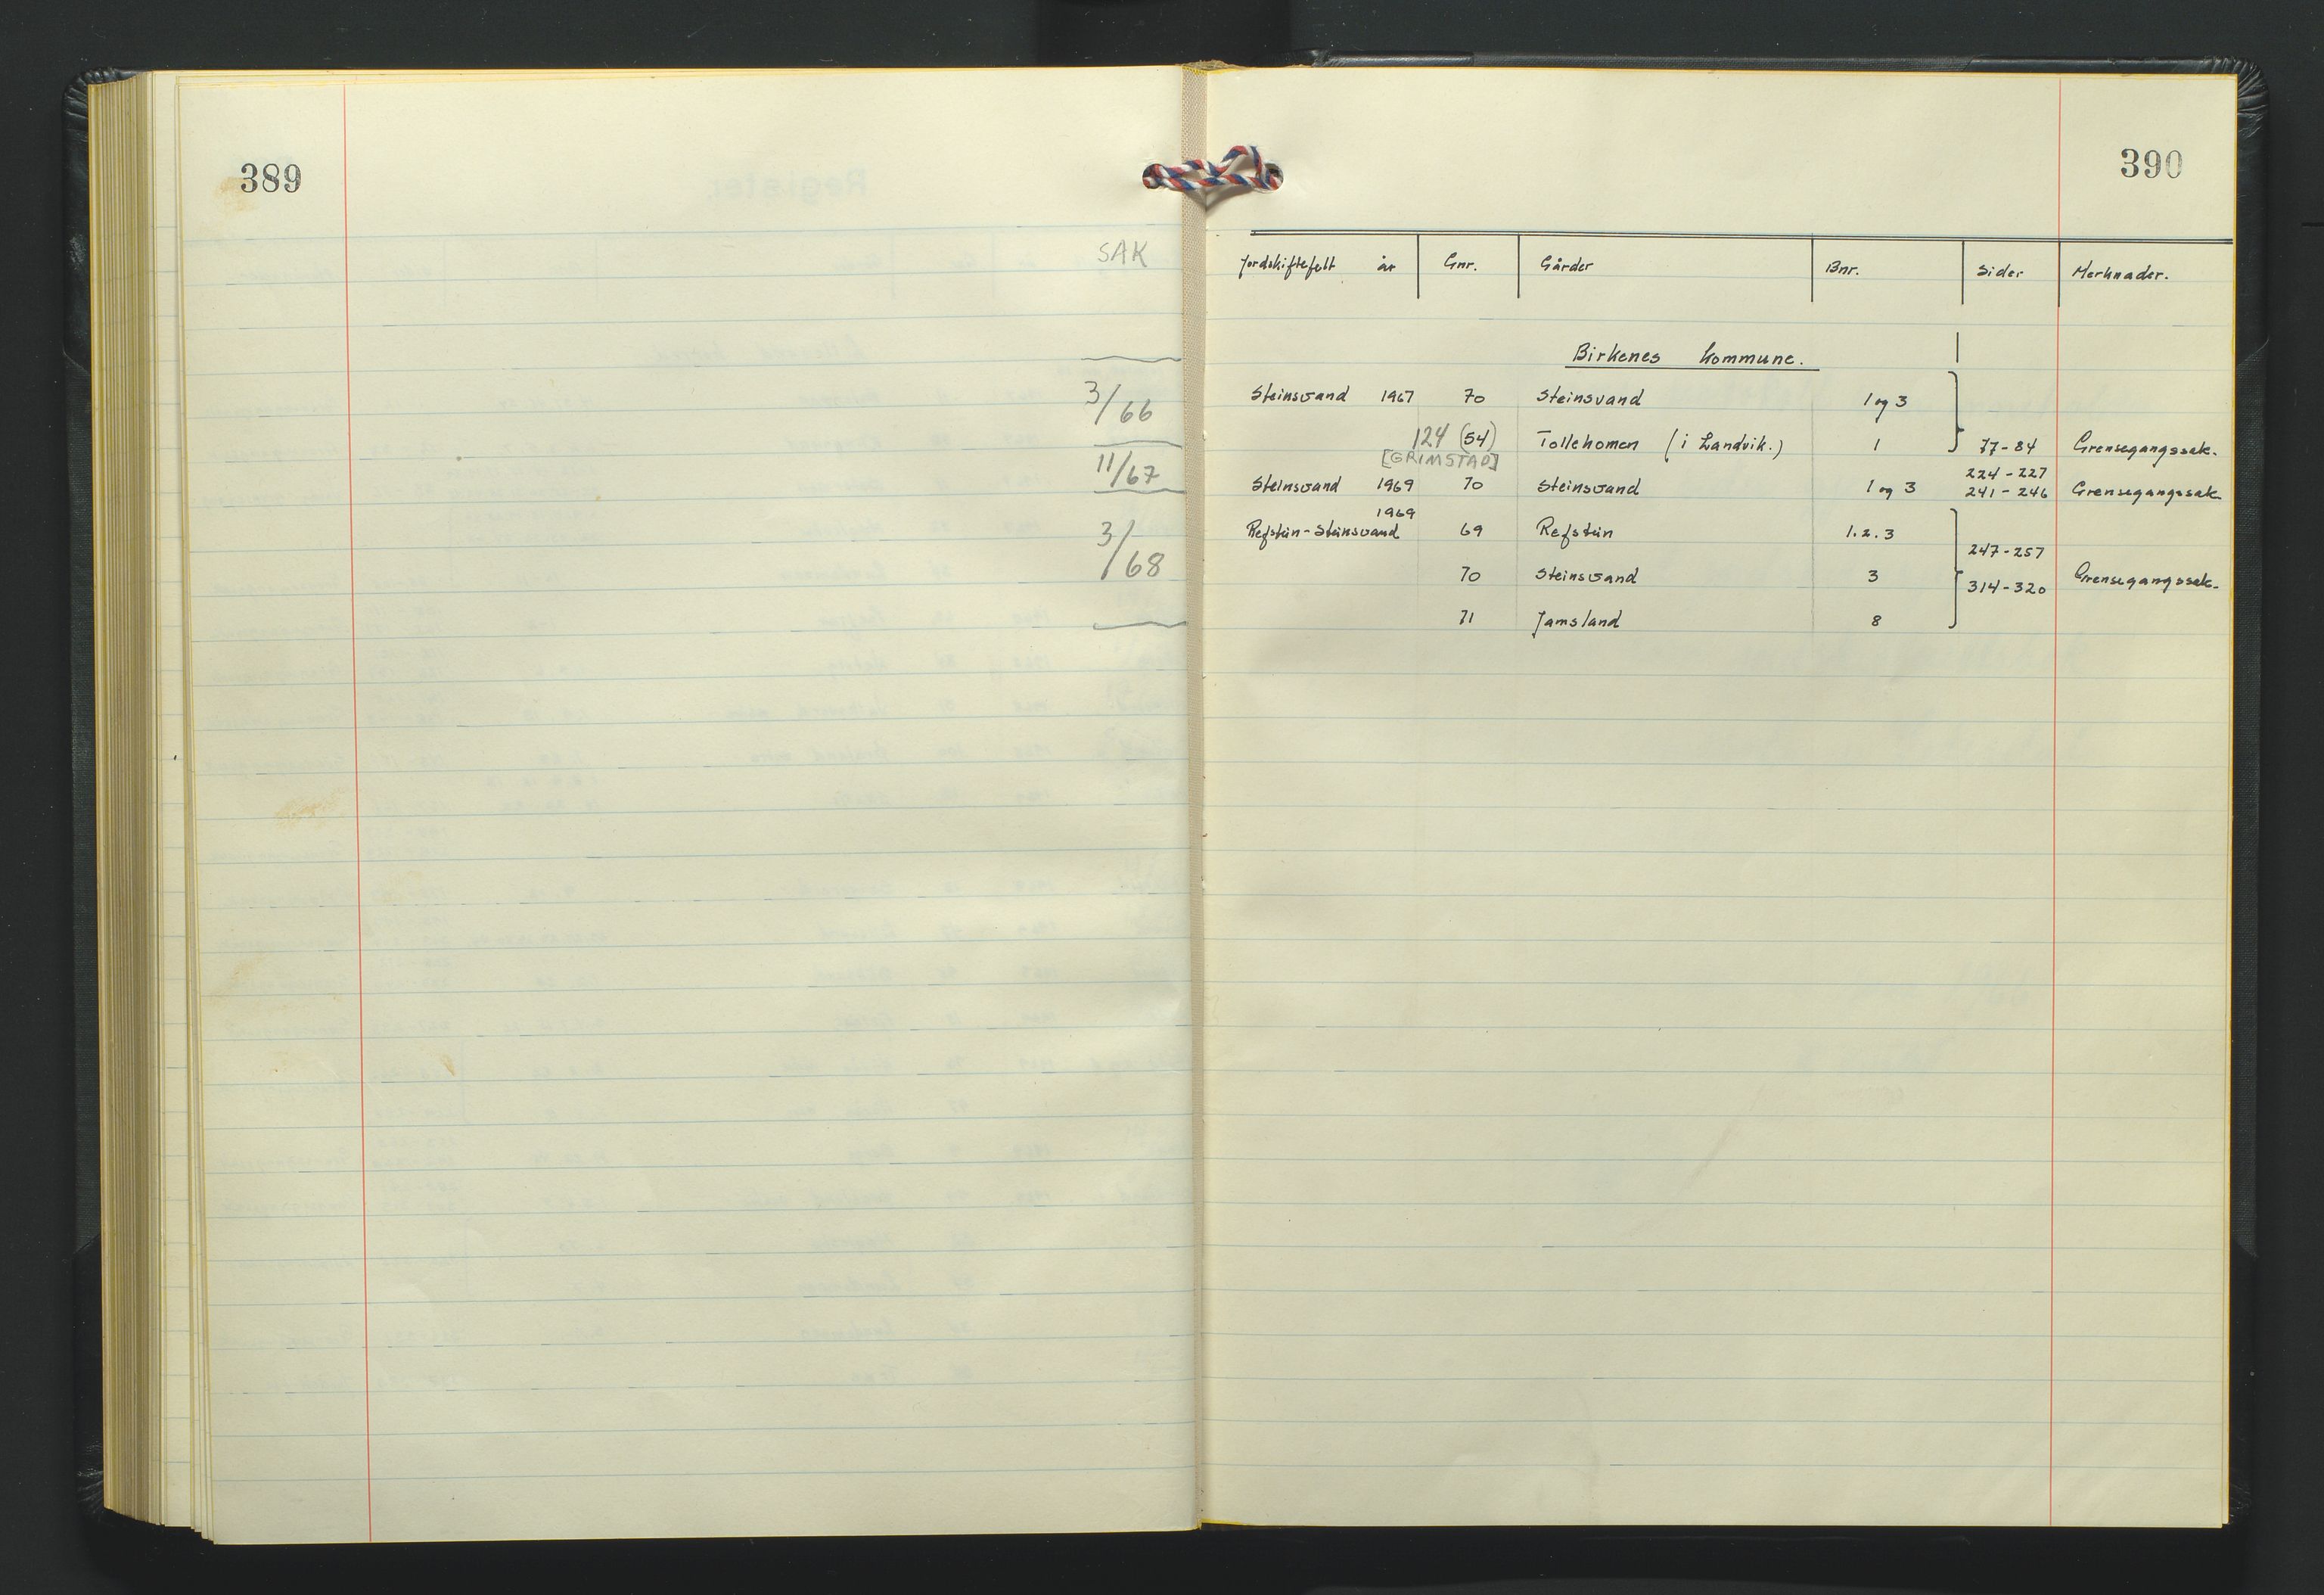 389
SAK
3/66
11/67
3/68
390
Jordskiftefelt år Gnr. Gårder Bnr. Sider Merknader.
Birkenes kommune.
Steinsvand 1967 70 Steinsvand 1 og 3
124 (54) Tollehomen (i Landvik.) 1 77-84 Grensegangssak.
[GRIMSTAD]
224-227
Steinsvand 1969 70 Steinsvand 1 og 3 241-246 Grensegangssak.
1969
Refstein-Steinsvand 69 Refstein 1.2.3
247-257
70 Steinsvand 3 314-320 Grensegangssak.
71 Jamsland 8